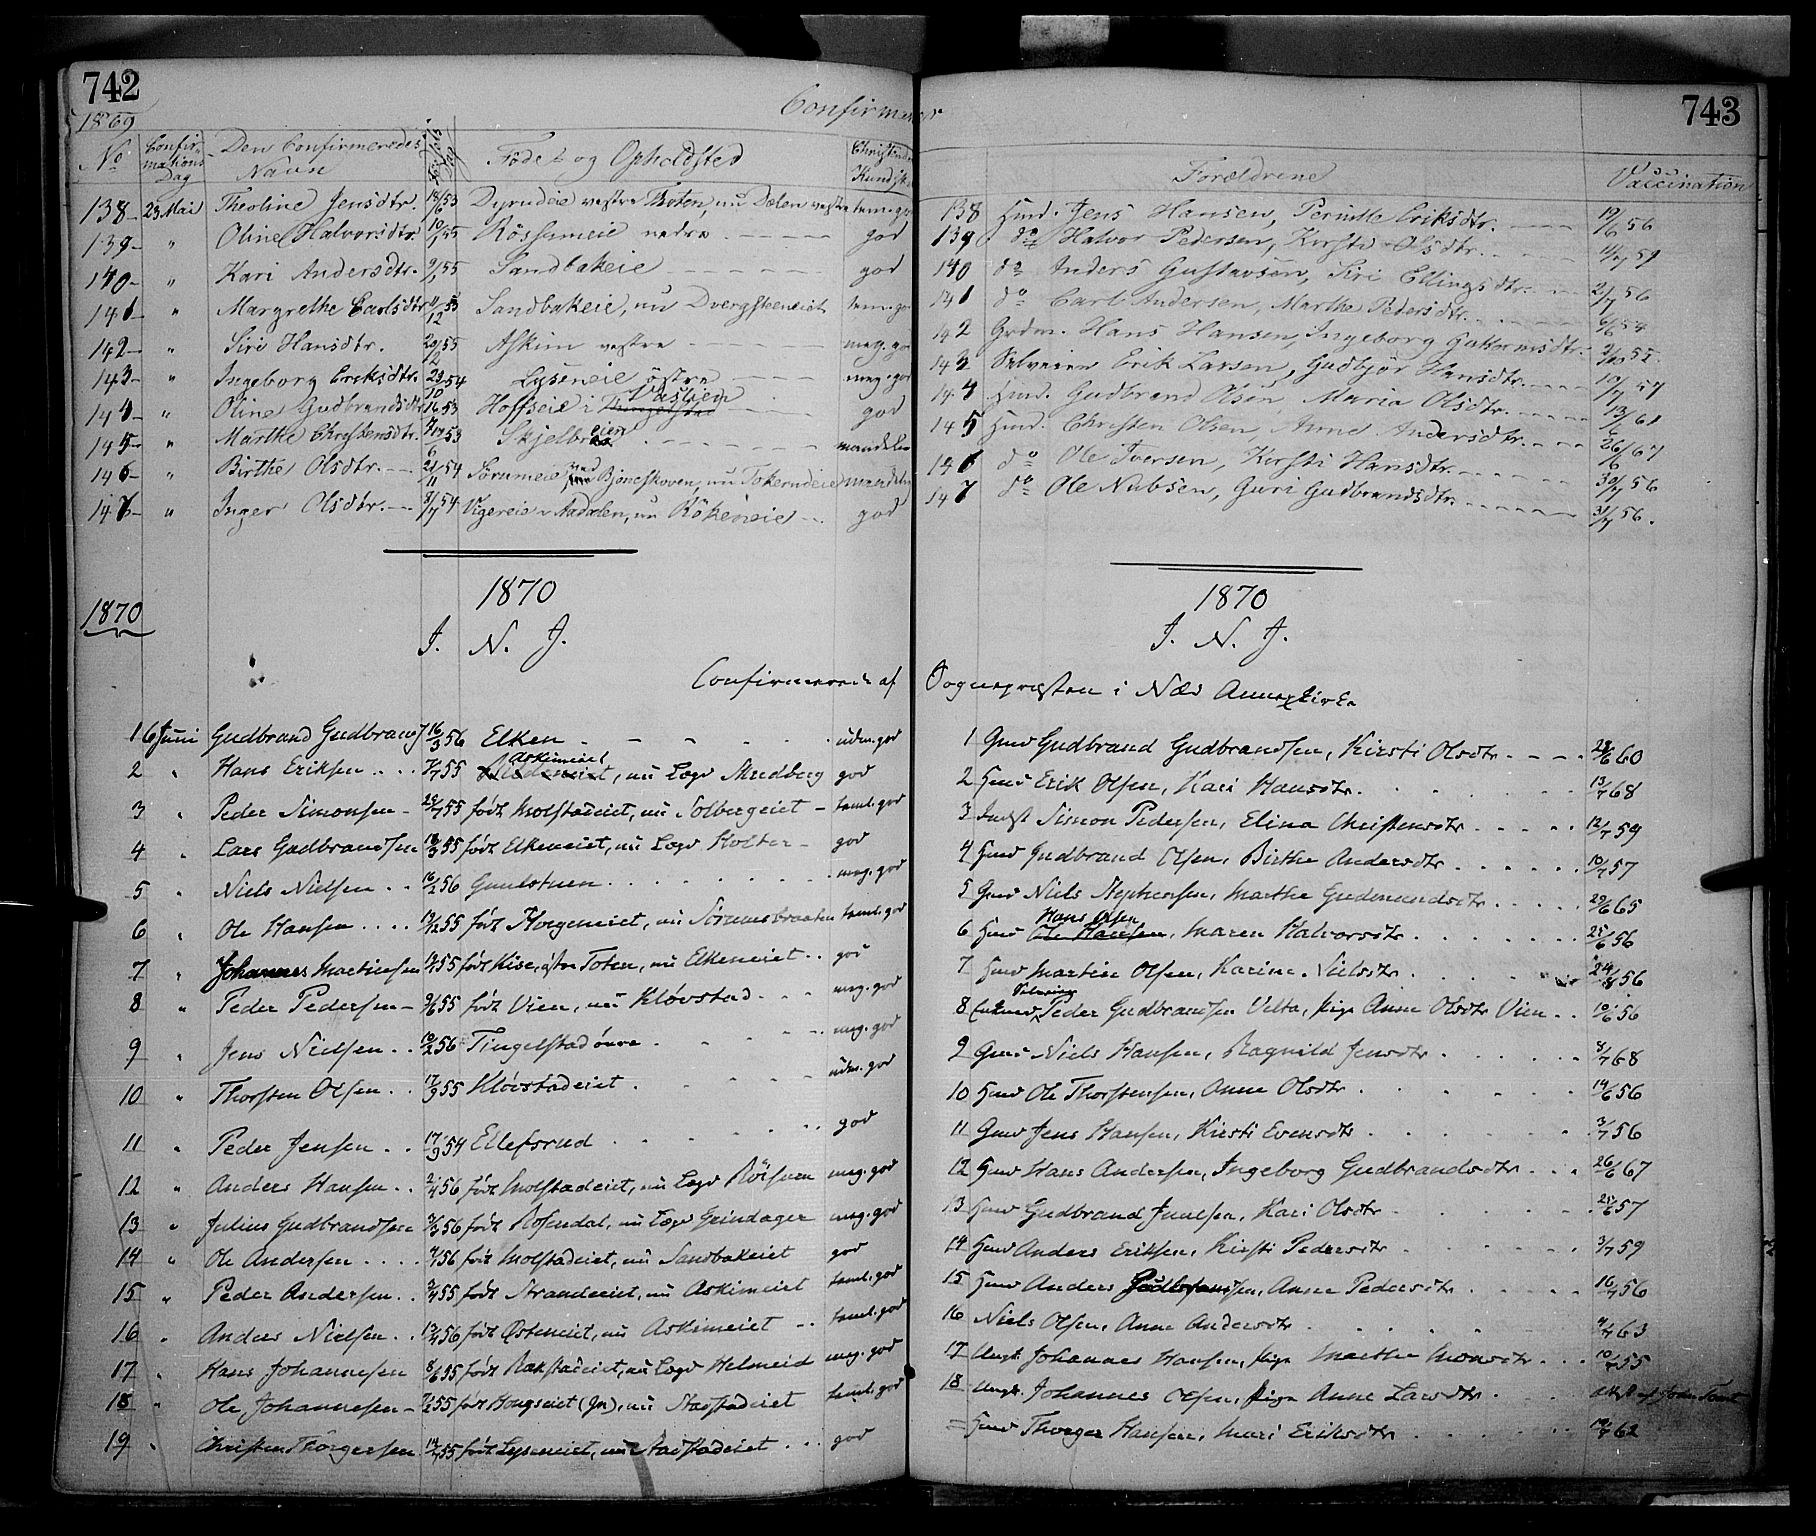 742
1869
Confirmerede
No
Confirmations Dag
Den Confirmeredes Navn
Fødselsdag
Føde- og Opholdsted
Christendoms Kundskab
138 23 Mai Theoline Jensdtr. 18/6 53 Dyrudeie vestre Thoten, nu Dælen vestre tem. god
139 " Oline Halvorsdtr. 10/1 55 Røssumeie nedre god
140 " Kari Andersdtr. 9/1 55 Sandbakeie god
141 " Margrethe Carlsdtr 11/12 53 Sandbakeie, nu Dvergsteneiet tem. god
142 " Siri Hansdtr. 20/2 55 Askim vestre meg. god
143 " Ingeborg Eriksdtr. 23/10 54 Lyseneie østre meg. god
144 " Oline Gudbrandsdtr 16 53 Hoffseie i Thingelstad god
145 " Marthe Christensdtr. 53 Skjelbreien maadelig
146 " Birthe Olsdtr. 21/11 54 Sørumeie ved Bjoneskoven, nu Tokerudeie maadelig
147 " Inger Olsdtr. 8/7 54 Vigereie i Aadalen, nu Røkeneie god
1870
1870
I. N. J.
Confirmerede af
1 6 Juni Gudbrand Gudbrands. 16/3 56 Elken udm. god
Askimeiet
2 " Hans Eriksen 7/7 55 nu Lægd Skredberg god
3 " Peder Simonsen 29/7 55 født Molstadeiet, nu Solbergeiet teml. god
4 " Lars Gudbrandsen 18/3 55 født Elkeneiet, nu Lægd Holter god
5 " Niels Nielsen 16/2 56 Gunlstuen meg. god
6 " Ole Hansen 19/12 55 født Horgeneiet, nu Sørumsbraaten teml. god
7 " Johannes Martinsen 55 født Kise, østre Toten, nu Elkeneiet god
8 " Peder Pedersen 9/6 55 født Vien, nu Kløvstad meg. god
9 " Jens Nielsen 10/2 56 Tingelstad øvre meg. god
10 " Thorsten Olsen 17/9 55 Kløvstadeiet udm. god
11 " Peder Jensen 17/9 54 Ellefsrud god
12 " Anders Hansen 2/4 56 født Molstadeiet, nu Lægd Røisum meg. god
13 " Julius Gudbrandsen 3/3 56 født Rosendal, nu Lægd Grindager meg. god
14 " Ole Andersen 56 født Molstadeiet, nu Sandbakeiet god
15 " Peder Andersen 55 født Strandeiet, nu Askimeiet teml. god
16 " Anders Nielsen 56 født Østeneiet, nu Askimeiet teml. god
17 " Hans Johannesen 8/6 55 født Rakstadeiet, nu Lægd Helmeid meg. god
18 " Ole Johannesen 55 født Hongseiet (Jn), nu Stadstadeiet teml. god
19 " Christen Thorgersen 55 født Lyseneiet, nu Rakstadeiet god
743
Forældrene
Vaccination
138 Husm. Jens Hansen, Pernille Eriksdtr. 19/6 56
139 do Halvor Pedersen, Kirsti Olsdtr. 4/7 59
140 do Anders Gustavsen, Siri Ellingsdtr. 2/7 56
141 do Carl Andersen, Marthe Pedersdtr. 6/6 54
142 Grdm. Hans Hansen, Ingeborg Guttormsdtr. 55
143 Selveier Erik Larsen, Gudbjør Hansdtr. 10/7 57
144 Husm. Gudbrand Olsen, Maria Olsdtr. 13/6 61
145 Husm. Christen Olsen, Anne Andersdtr. 26/6 67
146 do Ole Iversen, Kirsti Hansdtr. 30/7 56
147 do Ole Nubsen, Guri Gudbrandsdtr. 31/7 56.
1870
I. N. J.
Sognepresten i Næs Annexkirke
1 Gmd Gudbrand Gudbrandsen, Kirsti Olsdtr 28/6 60
2 Hmd Erik Olsen, Kari Hansdtr. 13/7 68
3 Indst Simon Pedersen, Eline Christensdtr 12/7 59
4 Hmd Gudbrand Olsen, Birthe Andersdtr 10/7 57
5 Gmd Niels Stephensen, Marthe Gudmundsdtr 29/6 65
Hans Olsen
6 Hmd Ole Hansen, Maren Halvorsdtr. 25/6 56
7 Hmd Martin Olsen, Karine Nielsdtr 24/8 56
Selveier
8 Enkemd Peder Gudbrandsen Velta, Pige Anne Olsdtr Vien 10/6 56
9 Gmd Niels Hansen, Ragnild Jensdtr 8/7 68
10 Hmd Ole Thorstensen, Anne Olsdtr 14/6 56
11 Gmd Jens Hansen, Kirsti Evensdtr 3/7 56
12 Hmd Hans Andersen, Ingeborg Gudbrandsdtr 26/6 67
13 Hmd Gudbrand Juulsen, Kari Olsdtr 25/6 57
14 Hmd Anders Eriksen, Kirsti Pedersdtr 3/7 59
15 Hmd Anders Gudbrandsen, Anne Pedersdtr 16/7 56
16 Niels Olsen, Anne Andersdtr 63
17 Ungk. Johannes Hansen, Pige Marthe 10/7 55
18 Ungk. Johannes Olsen, Pige Anne Larsdtr
Hmd Thorger Hansen, Mari Eriksdtr 62